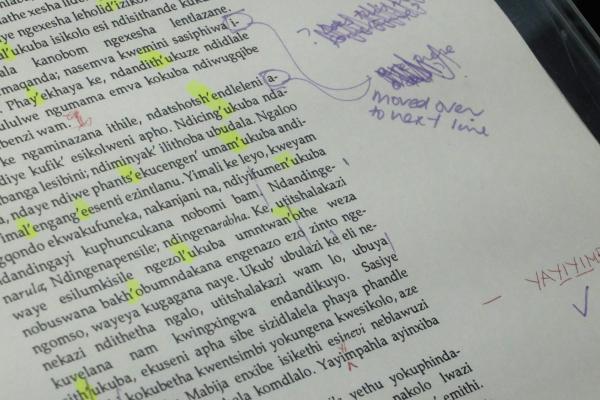 ye ngexesha lehlolid'izikolo.
l'ukuba isikolo esi ndisithande kunk
ala kanobom ngexesha lentlazane.
zmanda; nasemva kwemini sasiphiwa i-
Phay'ekhaya ke, ndandith'ukuze ndidlale
lulwe ngumama emva kokuba ndiwugqibe
benzi wam.
ke ngaminazana ithile, ndatshotsh'endleleni a-
diye kufik' esikolweni apho. Ndicing'ukuba nda-
banga lesibini; ndiminyak' ilithoba ubudala. Ngaloo
a, ndaye ndiwe phants'ekucengen' umam'ukuba andi-
imal'engang'eesenti ezintlanu. Yimali ke leyo, kweyam
gqondo ekwakufuneka, nakanjani na, ndiyifumen'ukuba
dandingayi kuphuncukana nobomi bam. Ndandinge-
narula, Ndingenapensile; ndingenarabha. Ke, utitshalakazi
waye esilumkisile ngezol'ukuba umntwan'othe weza
nobuswana bakh'obumndakana engenazo ezi zinto nge-
ngomso, wayeya kugagana naye. Ukub' ubulazi ke eti ne-
nekazi ndithetha ngalo, utitshalakazi wam lo, ubuya
kuvelana nam kwingxingwa endandikuyo. Sasiye
sith'ukuba, ekuseni apha sibe sizidlalela phaya phandle
kokubetha kwentsimbi yokungena kwesikolo, aze
Mabija enxibe isikethi esinevi neblawuzi
ala komdlalo. Yayimpahla ayinxiba
yethu yokuphinda-
nakolo lwazi
emithi.
moved over
to next line
YAYIYIN